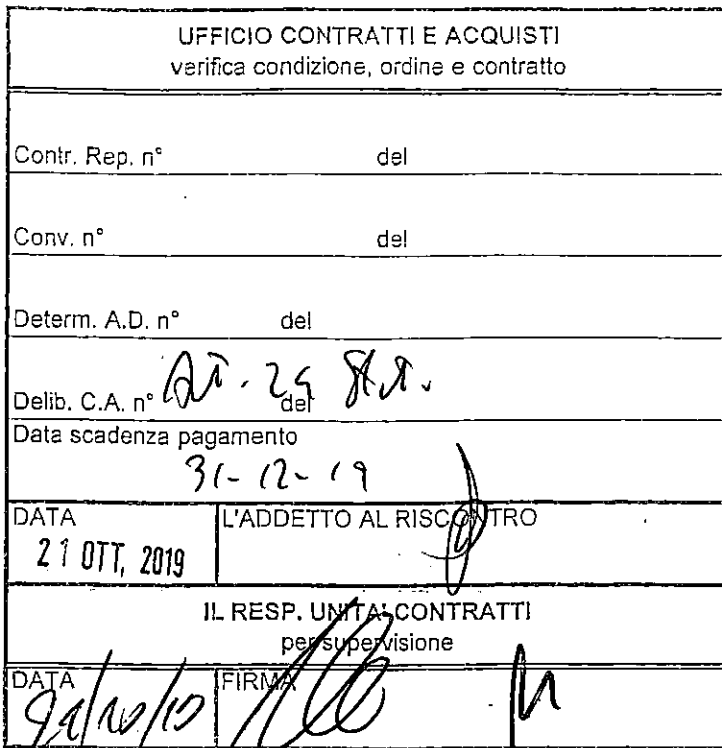 UFFICIO CONTRATTI E ACQUISTI
verifica condizione, ordine e contratto
Contr. Rep. n° del
Conv. n° del
Determ. A.D. n° del
Delib. C.A. n° del
Data scadenza pagamento
31-12-19
DATA L'ADDETTO AL RISCONTRO
21 OTT, 2019
IL RESP. UNITA' CONTRATTI
per supervisione
DATA FIRMA